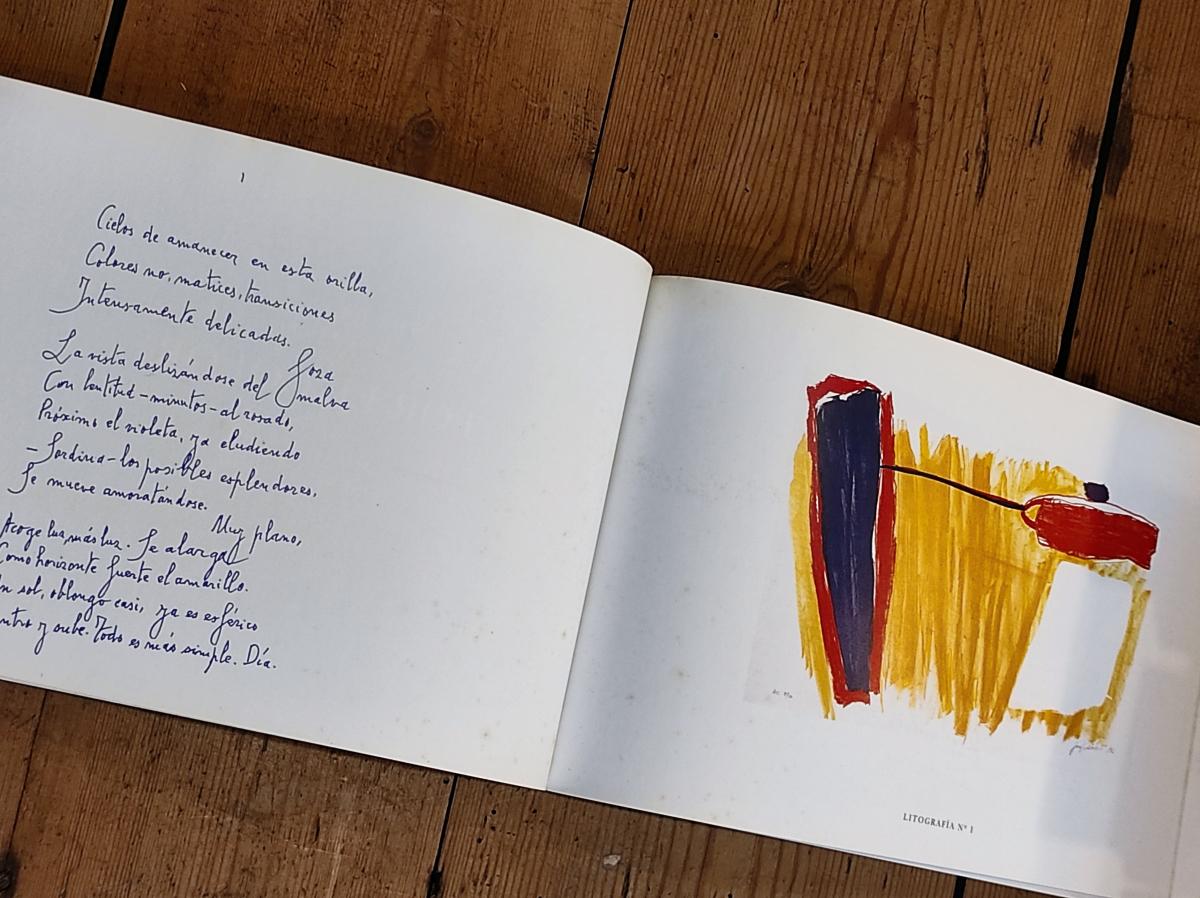 1
Cielos de amanecer en esta orilla,
Colores no, matices, transiciones
Intensamente delicadas.
La vista deslizándose del
malva
Con lentitud - minutos - al rosado,
Próximo el violeta, ya eludiendo
- Sordina - los posibles esplendores,
Se mueve amoratándose.
Muy plano,
Acoge luz, más luz. Se alarga
Como horizonte fuerte el amarillo.
Un sol, oblongo casi, ya es esférico
y sube. Todo es más simple. Día.
LITOGRAFÍA Nº 1